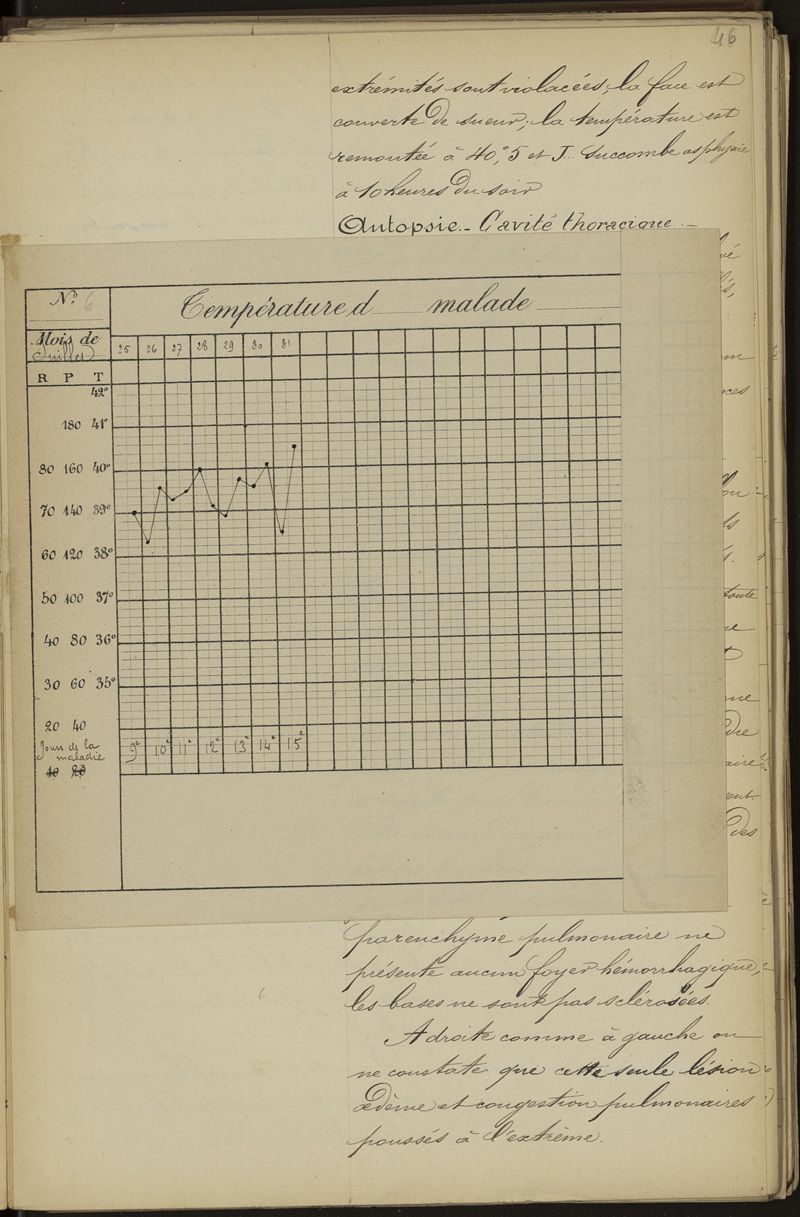 46
extrémités sont violacées; la face est
couverte de sueur; la température est
remontée à 40°,5 et J... succombe asphyxié
à 10 heures du soir
Autopsie.- Cavité thoracique.-
N° 6
Température d malade
Mois de
Juillet
25 26 27 28 29 30 31
R P T
42°
180 41°
80 160 40°
70 140 39°
60 120 38°
50 100 37°
40 80 36°
30 60 35°
20 40
Jours de la
maladie
9e 10e 11e 12e 13e 14e 15e
10 20
toute
aire
des
parenchyme pulmonaire ne
présente aucun foyer hémorrhagique,
les bases ne sont pas sclérosées.
A droite comme à gauche on
ne constate que cette seule lésion
œdème et congestion pulmonaires
poussés à l'extrême.
6